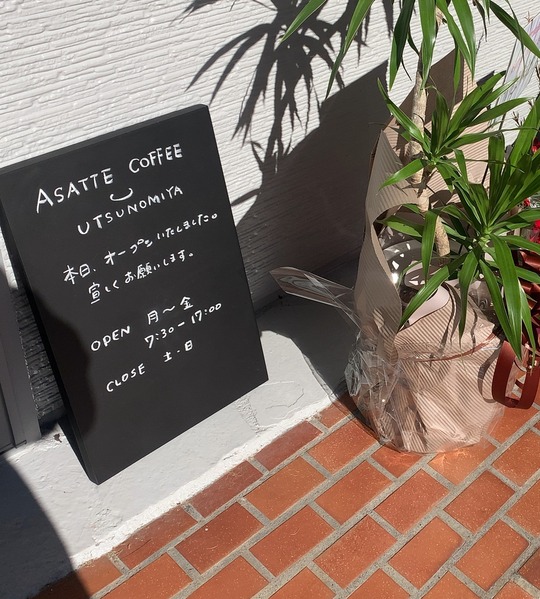 ASATTE COFFEE
UTSUNOMIYA
本日、オープンいたしました。
宜しくお願いします。
OPEN 月〜金
7:30-17:00
CLOSE 土・日